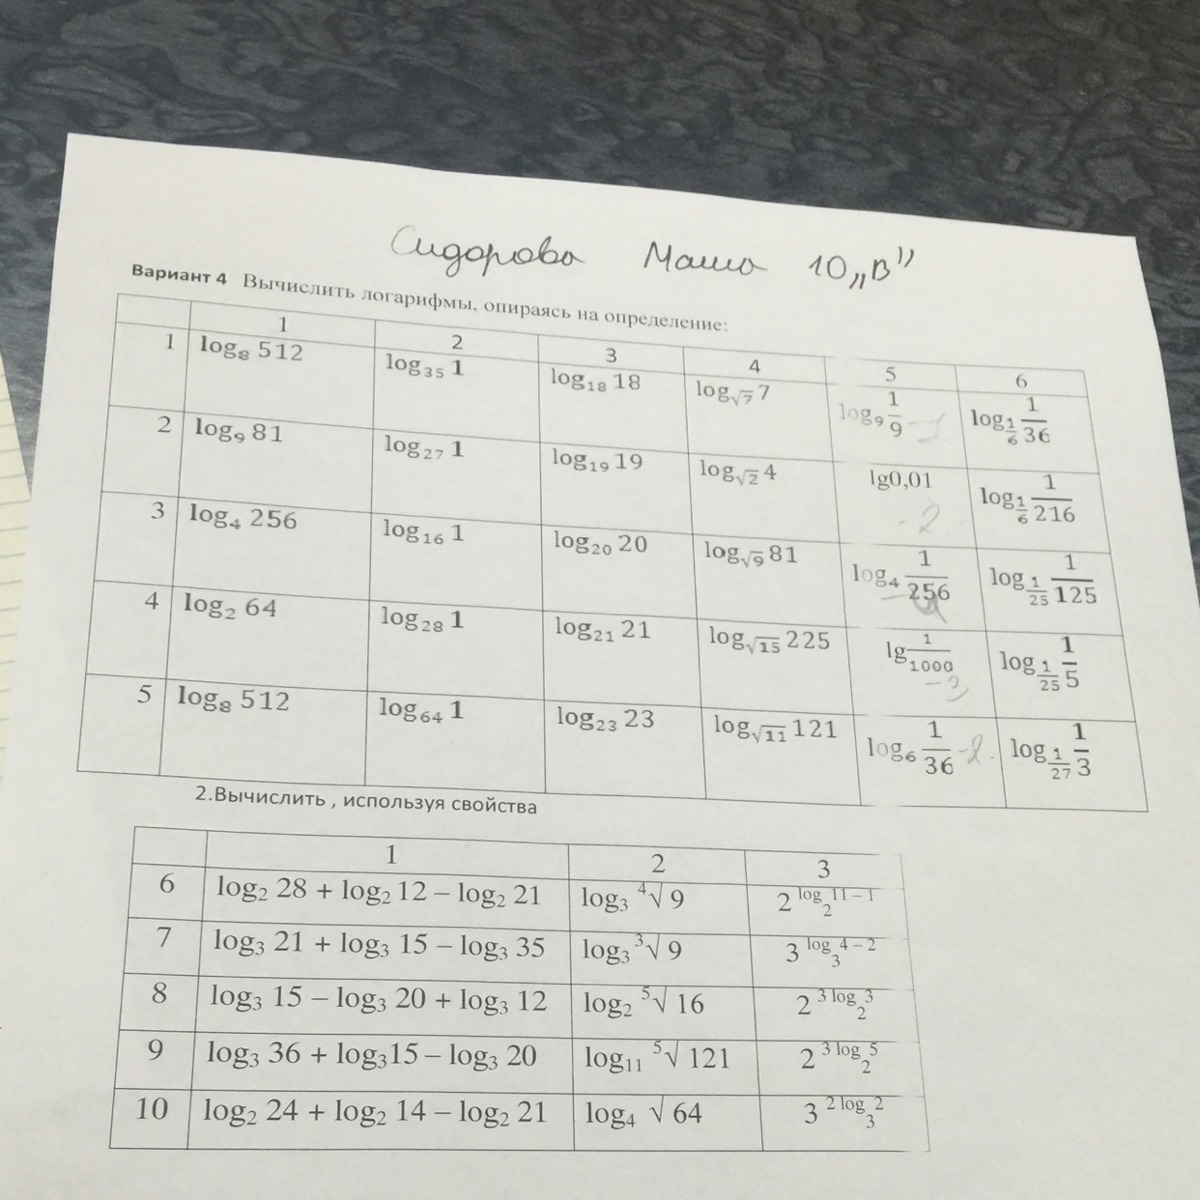 Сидорова Маша 10„В"
Вариант 4 Вычислить логарифмы, опираясь на определение:
1 2 3 4 5 6
1 log₈ 512 log₃₅ 1 log₁₈ 18 log_√7 7 log₉ 1/9 log_1/6 1/36
2 log₉ 81 log₂₇ 1 log₁₉ 19 log_√2 4 lg0,01 -2 log_1/6 1/216
3 log₄ 256 log₁₆ 1 log₂₀ 20 log_√9 81 log₄ 1/256 log_1/25 1/125
4 log₂ 64 log₂₈ 1 log₂₁ 21 log_√15 225 lg 1/1000 -3 log_1/25 1/5
5 log₈ 512 log₆₄ 1 log₂₃ 23 log_√11 121 log₆ 1/36 -2. log_1/27 1/3
2.Вычислить , используя свойства
1 2 3
6 log₂ 28 + log₂ 12 – log₂ 21 log₃ ⁴√ 9 2^(log₂ 11 – 1)
7 log₃ 21 + log₃ 15 – log₃ 35 log₃ ³√ 9 3^(log₃ 4 – 2)
8 log₃ 15 – log₃ 20 + log₃ 12 log₂ ⁵√ 16 2^(3 log₂ 3)
9 log₃ 36 + log₃15 – log₃ 20 log₁₁ ⁵√ 121 2^(3 log₂ 5)
10 log₂ 24 + log₂ 14 – log₂ 21 log₄ √ 64 3^(2 log₃ 2)